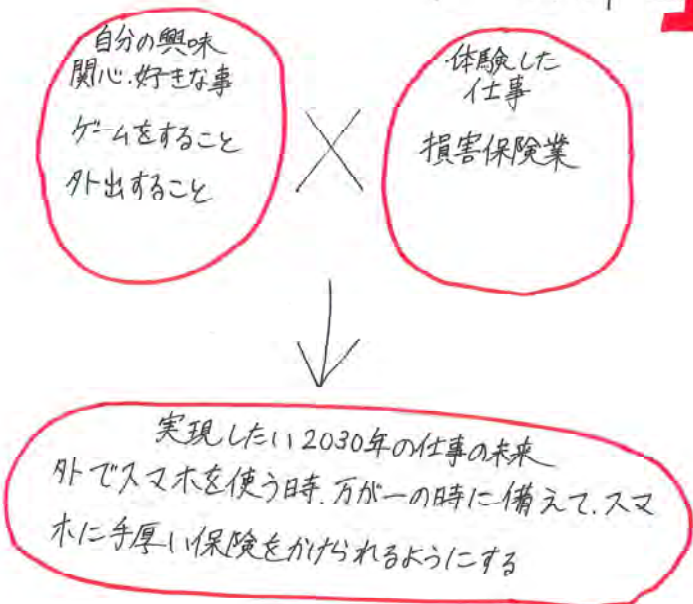 自分の興味
関心・好きな事
ゲームをすること
外出すること
体験した
仕事
損害保険業
実現したい2030年の仕事の未来
外でスマホを使う時、万が一の時に備えて、スマ
ホに手厚い保険をかけられるようにする